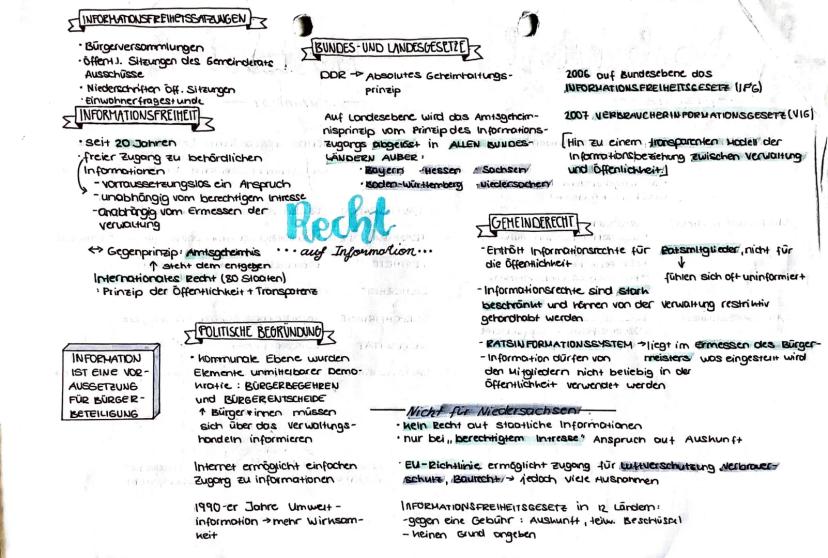 INFORMATIONSFREIHEITSSATZUNGEN
· Bürgerversammlungen
· Öffentl. Sitzungen des Gemeinderats
Ausschüsse
· Niederschriften öff. Sitzungen
· Einwohnerfragestunde
INFORMATIONSFREIHEIT
· seit 20 Jahren
· freier Zugang zu behördlichen
Informationen
- vorraussetzungslos ein Anspruch
- unabhängig vom berechtigem Intresse
- unabhängig vom Ermessen der
Verwaltung
↔ Gegenprinzip: Amtsgeheimnis
↑ steht dem entgegen
Internationales Recht (80 Staaten)
: Prinzip der Öffentlichkeit + Transparenz
INFORMATION
IST EINE VOR-
AUSSETZUNG
FÜR BÜRGER-
BETEILIGUNG
BUNDES- UND LANDESGESETZE
DDR → Absolutes Geheimhaltungs-
prinzip
Auf Landesebene wird das Amtsgeheim-
nisprinzip vom Prinzip des Informations-
zugangs abgelöst in ALLEN BUNDES-
LÄNDERN AUßER:
· Bayern · Hessen · Sachsen
· Baden-Württemberg · Niedersachsen
Recht
... auf Information...
POLITISCHE BEGRÜNDUNG
· Kommunale Ebene wurden
Elemente unmittelbarer Demo-
kratie: BÜRGERBEGEHREN
und BÜRGERENTSCHEIDE
↑ Bürger*innen müssen
sich über das Verwaltungs-
handeln informieren
Internet ermöglicht einfachen
Zugang zu Informationen
1990-er Jahre Umwelt-
information → mehr Wirksam-
keit
2006 auf Bundesebene das
INFORMATIONSFREIHEITSGESETZ (IFG)
2007 VERBRAUCHERINFORMATIONSGESETZ (VIG)
[Hin zu einem transparenten Modell der
Informationsbeziehung zwischen Verwaltung
und Öffentlichkeit]
GEMEINDERECHT
- Enthält Informationsrechte für Ratsmitglieder, nicht für
die Öffentlichkeit
↓
fühlen sich oft uninformiert
- Informationsrechte sind stark
beschränkt und können von der Verwaltung restriktiv
gehandhabt werden
- RATSINFORMATIONSSYSTEM → liegt im Ermessen des Bürger-
meisters was eingestellt wird
- Information dürfen von
den Mitgliedern nicht beliebig in der
Öffentlichkeit verwendet werden
Nicht für Niedersachsen
· Kein Recht auf staatliche Informationen
· nur bei „berechtigtem Intresse" Anspruch auf Auskunft
· EU-Richtlinie ermöglicht Zugang für Luftverschutzung, Verbraver-
schutz, Baurecht → jedoch viele Ausnahmen
INFORMATIONSFREIHEITSGESETZ in 12 Ländern:
- gegen eine Gebühr: Auskunft, teilw.
- keinen Grund angeben